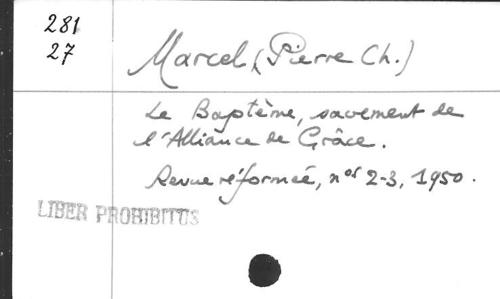 281
27
Marcel (Pierre Ch.)
Le Baptême, sacrement de
l'Alliance de Grâce.
Revue réformée, nos 2-3, 1950.
LIBER PROHIBITUS